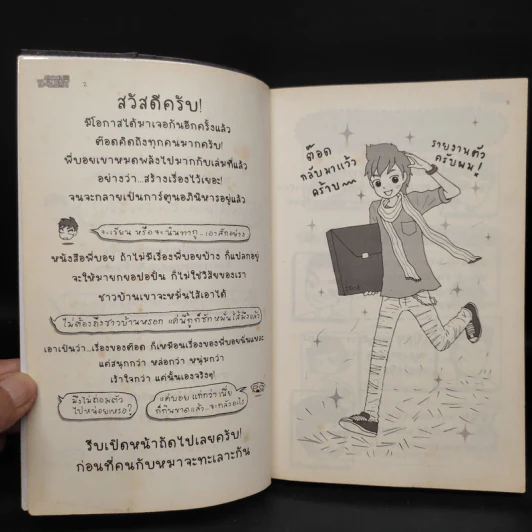 2
สวัสดีครับ!
มีโอกาสได้มาเจอกันอีกครั้งแล้ว
ต๊อดคิดถึงทุกคนมากครับ!
พี่บอยเขาหมดพลังไปมากกับเล่มที่แล้ว
อย่างว่า...สร้างเรื่องไว้เยอะ!
จนจะกลายเป็นการ์ตูนอภินิหารอยู่แล้ว
จะเรียน หรือจะนินทากู...เอาสักอย่าง
หนังสือพี่บอย ถ้าไม่มีเรื่องพี่บอยบ้าง ก็แปลกอยู่
จะให้มายกยอปอปั้น ก็ไม่ใช่วิสัยของเรา
ชาวบ้านเขาจะหมั่นไส้เอาได้
ไม่ต้องถึงชาวบ้านหรอก แค่พี่กูก็ชักหมั่นไส้มึงแล้ว
เอาเป็นว่า...เรื่องของต๊อด ก็เหมือนเรื่องของพี่บอยนั่นแหละ
แค่สนุกกว่า หล่อกว่า หนุ่มกว่า
เร้าใจกว่า แค่นั้นเองจริงๆ!
มึงไม่ถ่อมตัว
ไปหน่อยเหรอ?
รีบเปิดหน้าถัดไปเลยครับ!
ก่อนที่คนกับหมาจะทะเลาะกัน
ต๊อด
กลับมาแว้ว
คร้าบ~~
รายงานตัว
ครับผม!